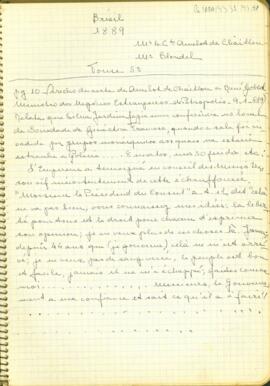 Brésil
1889
Mr le Cte Amelot de Chaillou
Mr Blondel
Tome 53
pg. 10 - Trecho da carta de Amelot de Chaillou a René Goblet
Ministro dos Negócios Estrangeiros de Petropolis - 9-1-889
Relata que Silva Jardim fazia uma conferência no local
da Sociedade de Ginastica Francesa, quando a sala foi in-
vadida por grupos monarquistas aos quais não estava
estranha a Polícia ... E recebeu uns 30 feridos etc.
L'Empereur a temoigné au conseil des Ministres
son vif mécontentement de cette échauffourée.
"Messieurs le President du Conseil" a-t-il dit "cela
ne va pas bien, vous connaissez mes idées; la liber-
té pour tous et le droit pour chacun d'exprimer
son opinion; je ne veux plus de ces choses là. Jamais
depuis 46 ans que (je gouverne) celà ne m'est arri-
vé; je ne veux pas de sang versé, le peuple est bon
et facile, jamais il ne m'a échappé; faites comme
moi.
ma confiance et sait ce qu'il a à faire"!